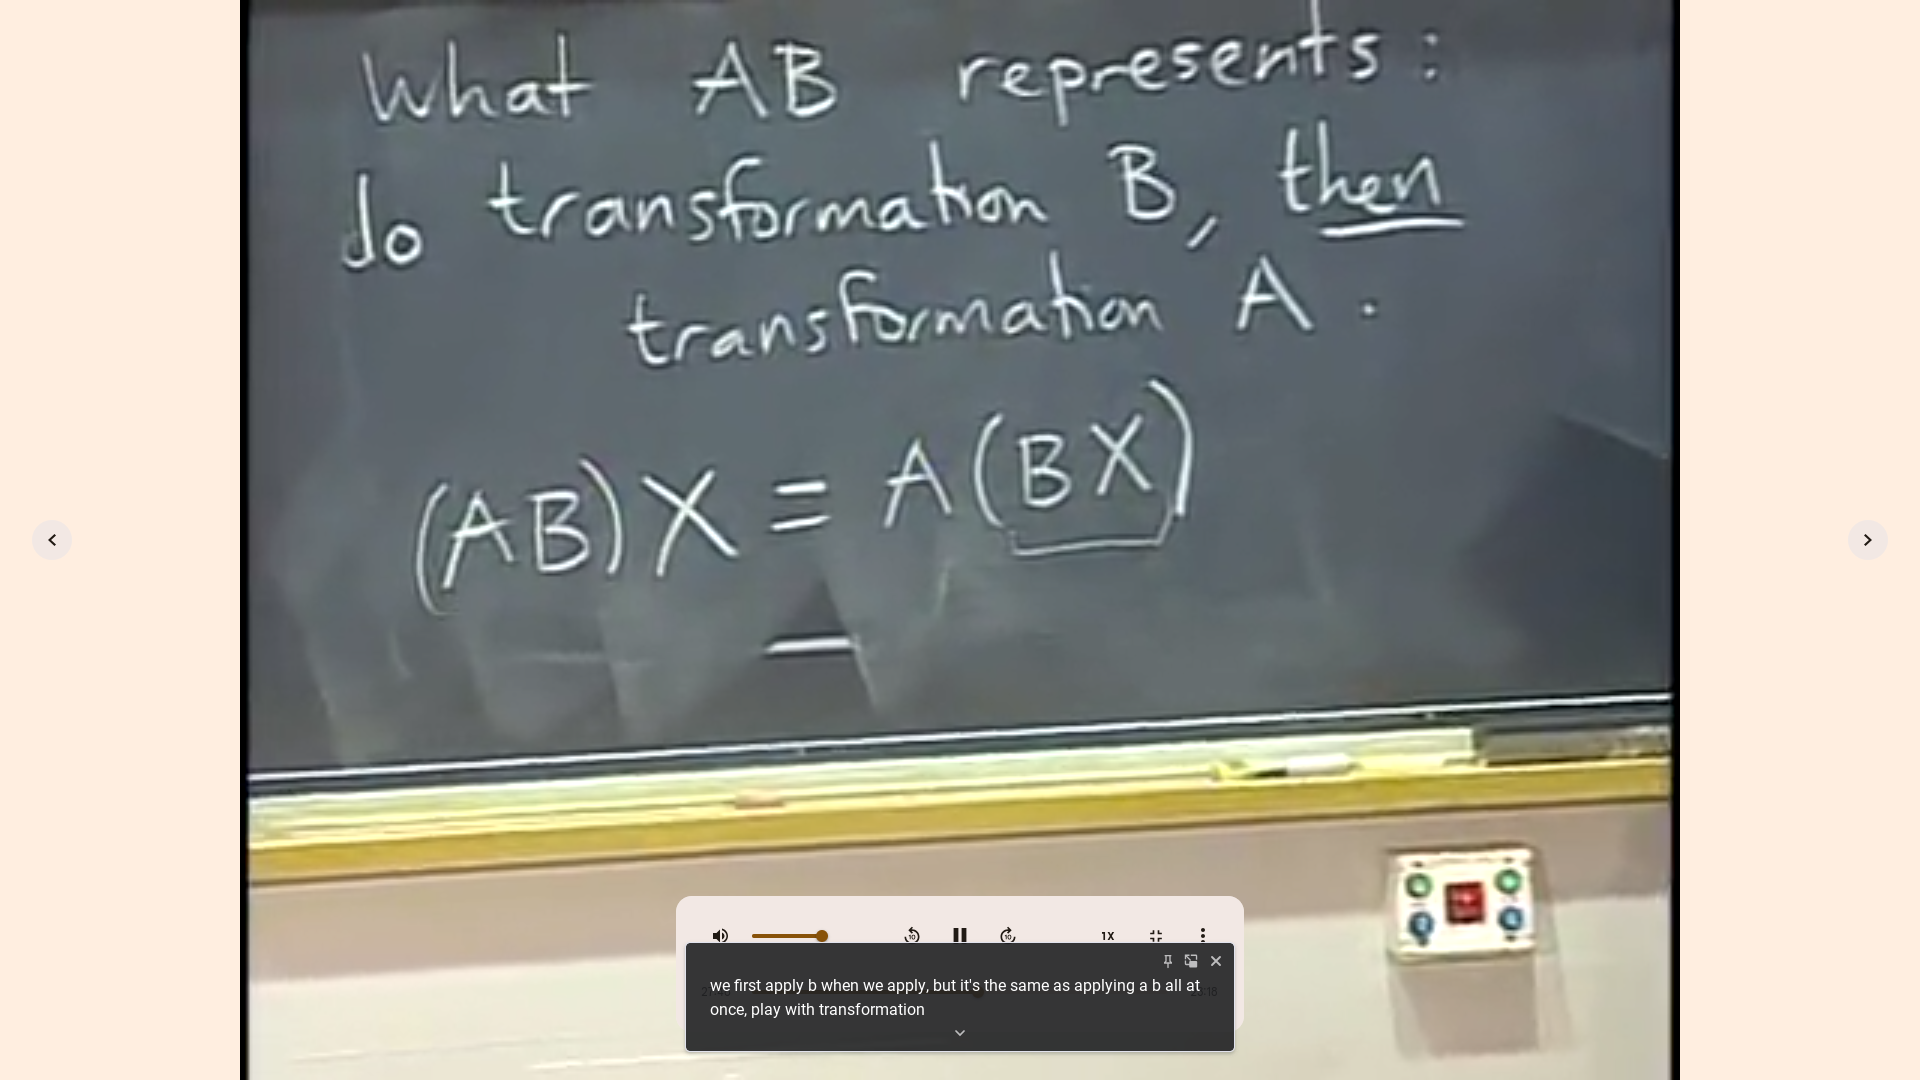 What AB represents:
do transformation B, then
transformation A.
(AB)X = A(BX)
1X
we first apply b when we apply, but it's the same as applying a b all at
once, play with transformation